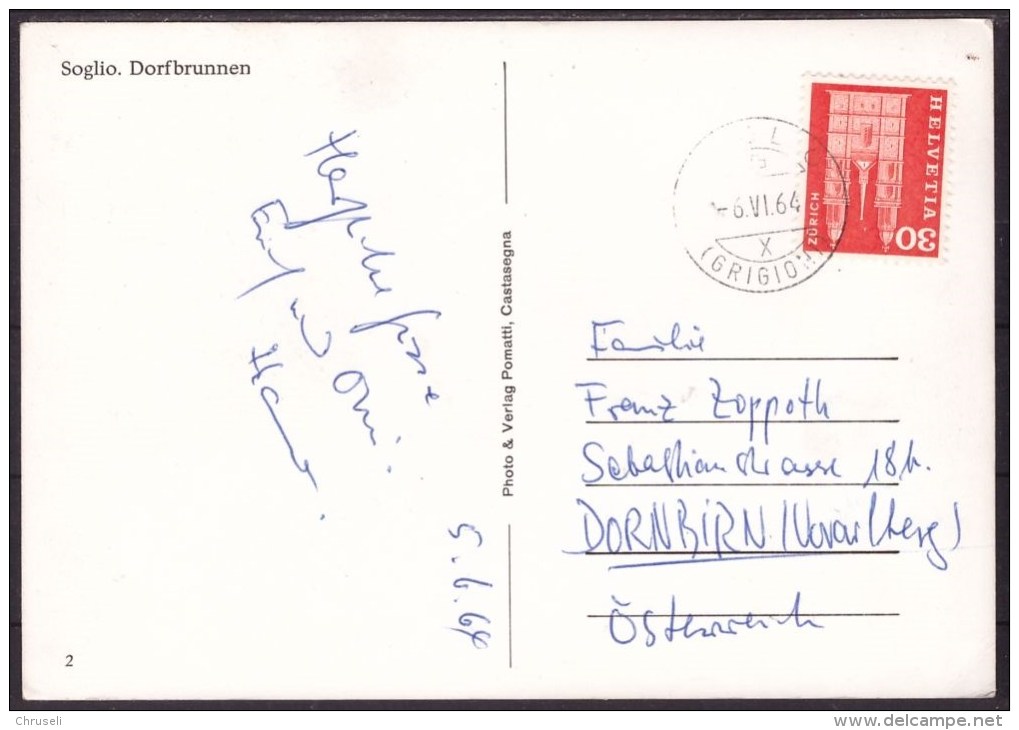 Soglio. Dorfbrunnen
Herzliche Grüsse
und Omi.
5.6.64
2
Photo & Verlag Pomatti, Castasegna
HELVETIA
30
ZÜRICH
-6.VI.64
X
(GRIGIONI)
Familie
Franz Zoppoth
Sebastianstrasse 18h.
DORNBIRN (Vorarlberg)
Österreich
Chruseli
www.delcampe.net